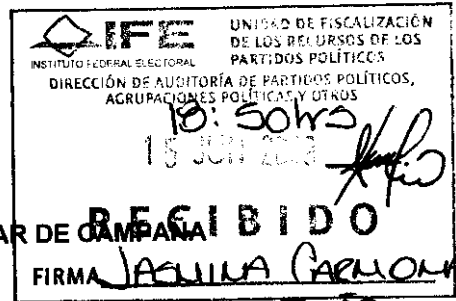 IFE
INSTITUTO FEDERAL ELECTORAL
UNIDAD DE FISCALIZACIÓN
DE LOS RECURSOS DE LOS
PARTIDOS POLÍTICOS
DIRECCIÓN DE AUDITORÍA DE PARTIDOS POLÍTICOS,
AGRUPACIONES POLÍTICAS Y OTROS
18:50hrs
15 JUN
AR DE CAMPAÑA
RECIBIDO
FIRMA JASMINA CARMONA